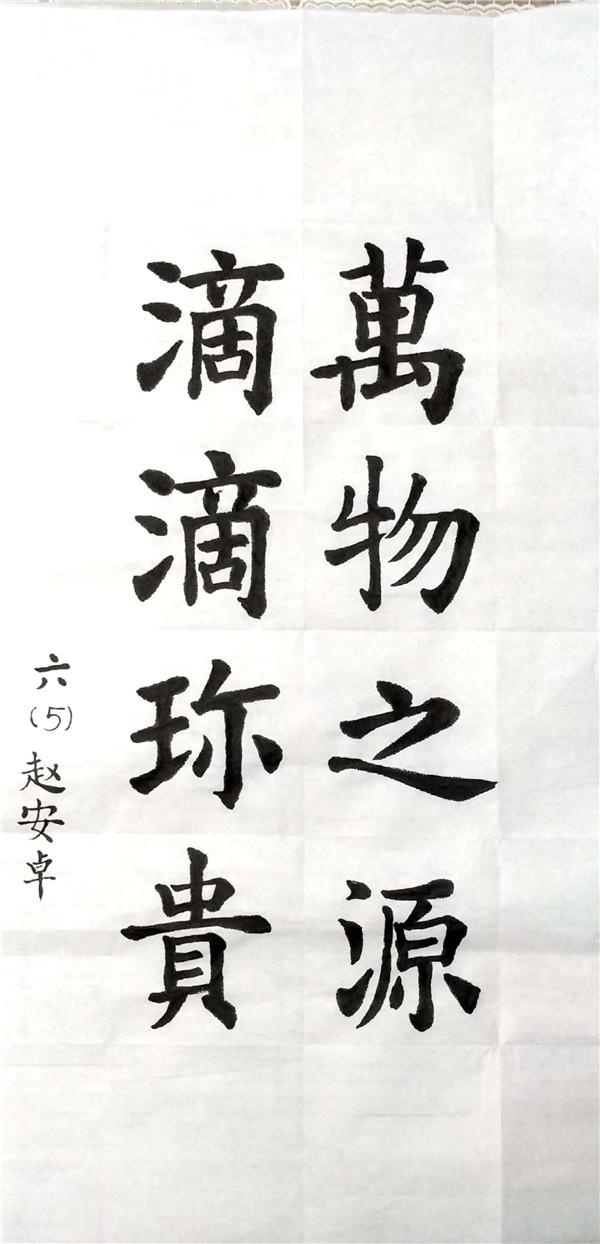 萬物之源
滴滴珎貴
六(5)赵安卓